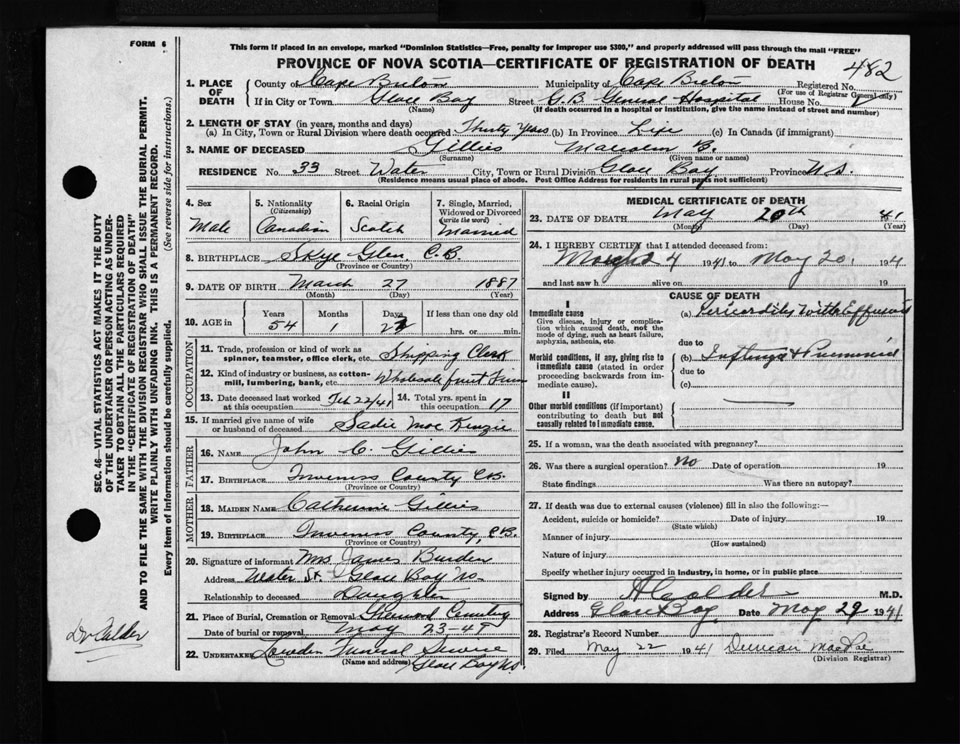 FORM 6
This form if placed in an envelope, marked "Dominion Statistics—Free, penalty for improper use $300," and properly addressed will pass through the mail "FREE"
PROVINCE OF NOVA SCOTIA—CERTIFICATE OF REGISTRATION OF DEATH
482
1. PLACE OF DEATH
County of Cape Breton Municipality of Cape Breton Registered No.
(For use of Registrar General only)
If in City or Town Glace Bay Street G.B. General Hospital House No.
(Name) (If death occurred in a hospital or institution, give the name instead of street and number)
2. LENGTH OF STAY (in years, months and days)
(a) In City, Town or Rural Division where death occurred Thirty Years (b) In Province Life (c) In Canada (if immigrant)
3. NAME OF DECEASED Gillies Malcolm B.
(Surname) (Given name or names)
RESIDENCE No. 33 Street Water City, Town or Rural Division Glace Bay Province N.S.
(Residence means usual place of abode. Post Office Address for residents in rural parts not sufficient)
4. Sex
Male
5. Nationality (Citizenship)
Canadian
6. Racial Origin
Scotch
7. Single, Married, Widowed or Divorced (write the word)
Married
8. BIRTHPLACE Skye Glen, C.B.
(Province or County)
9. DATE OF BIRTH March 27 1887
(Month) (Day) (Year)
10. AGE in Years Months Days If less than one day old
54 1 hrs. or min.
OCCUPATION
11. Trade, profession or kind of work as spinner, teamster, office clerk, etc. Shipping Clerk
12. Kind of industry or business, as cotton-mill, lumbering, bank, etc. Wholesale fruit Firm
13. Date deceased last worked at this occupation Feb 22/41 14. Total yrs. spent in this occupation 17
15. If married give name of wife or husband of deceased Sadie Mac Kenzie
FATHER
16. NAME John C. Gillies
17. BIRTHPLACE Inverness County C.B.
(Province or County)
MOTHER
18. MAIDEN NAME Catherine Gillies
19. BIRTHPLACE Inverness County, C.B.
(Province or County)
20. Signature of informant Mrs James Burden
Address Water St. Glace Bay NS
Relationship to deceased Daughter
21. Place of Burial, Cremation or Removal Greenwood Cemetery
Date of burial or removal May 23-41
22. UNDERTAKER Funeral Service
(Name and address) Glace Bay NS
MEDICAL CERTIFICATE OF DEATH
23. DATE OF DEATH May 20th 41
(Month) (Day) (Year)
24. I HEREBY CERTIFY that I attended deceased from:
4 1941 to May 20, 194
and last saw h alive on 19
CAUSE OF DEATH
I
Immediate cause
Give disease, injury or complication which caused death, not the mode of dying, such as heart failure, asphyxia, asthenia, etc.
(a) Pericarditis with Effusion
due to
Morbid conditions, if any, giving rise to immediate cause (stated in order proceeding backwards from immediate cause).
(b) & Pneumonia
due to
(c)
II
Other morbid conditions (if important) contributing to death but not causally related to immediate cause.
25. If a woman, was the death associated with pregnancy?
26. Was there a surgical operation? No Date of operation 19
State findings Was there an autopsy?
27. If death was due to external causes (violence) fill in also the following:—
Accident, suicide or homicide? Date of injury 19
(State which)
Manner of injury
(How sustained)
Nature of injury
Specify whether injury occurred in industry, in home, or in public place
Signed by A Calder M.D.
Address Glace Bay Date May 29 1941
28. Registrar's Record Number
29. Filed May 22 1941 Duncan
(Division Registrar)
SEC. 46—VITAL STATISTICS ACT MAKES IT THE DUTY
OF THE UNDERTAKER OR PERSON ACTING AS UNDERTAKER TO OBTAIN ALL THE PARTICULARS REQUIRED
IN THE "CERTIFICATE OF REGISTRATION OF DEATH"
AND TO FILE THE SAME WITH THE DIVISION REGISTRAR WHO SHALL ISSUE THE BURIAL PERMIT.
WRITE PLAINLY WITH UNFADING INK. THIS IS A PERMANENT RECORD.
Every item of information should be carefully supplied. (See reverse side for instructions.)
Dr Calder